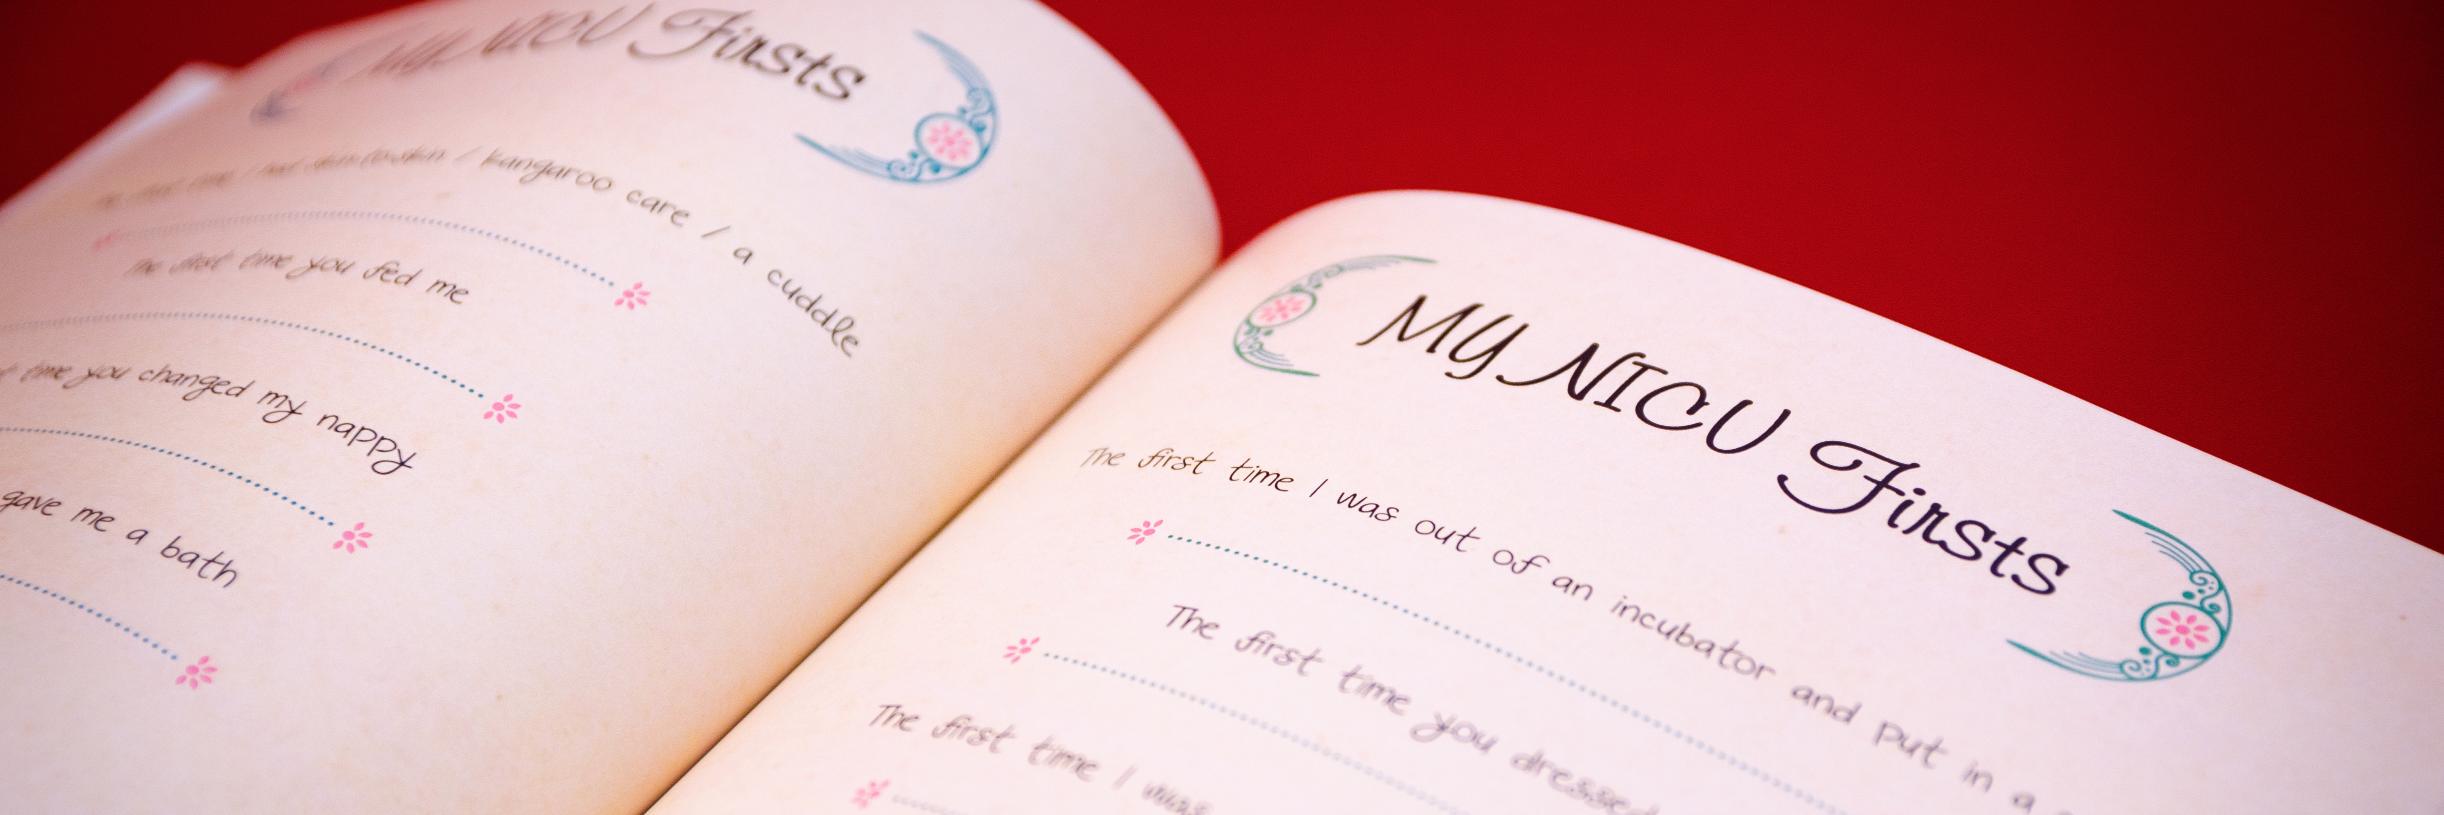 My NICU Firsts
The first time I had skin-to-skin / kangaroo care / a cuddle
The first time you fed me
time you changed my nappy
gave me a bath
My NICU Firsts
The first time I was out of an incubator and put in a
The first time you dressed
The first time I was